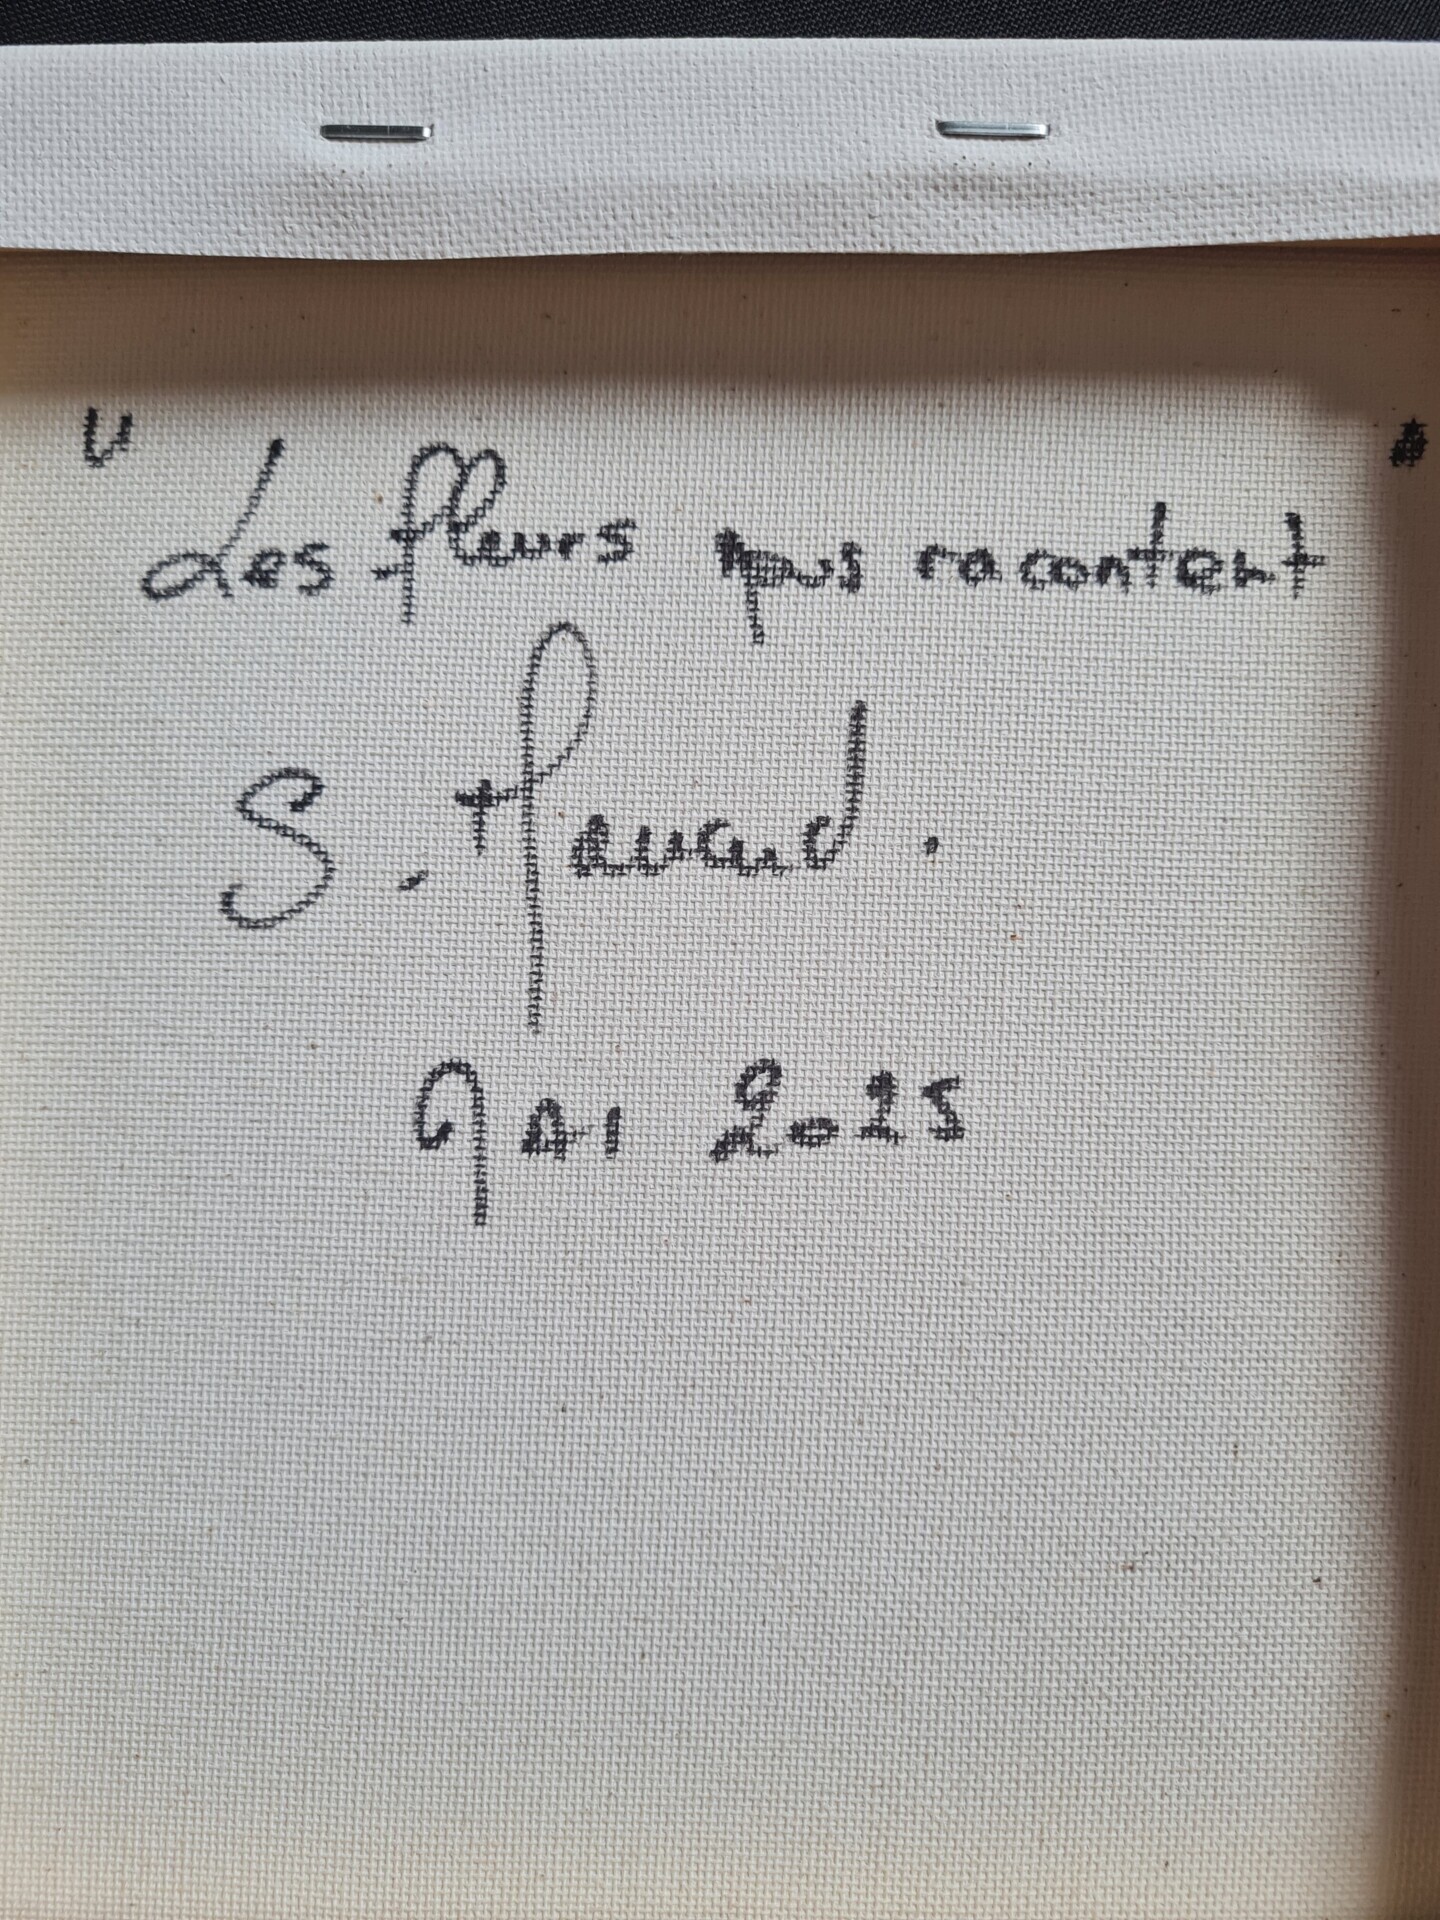 "Les fleurs nous racontent"
S.
Mai 2025